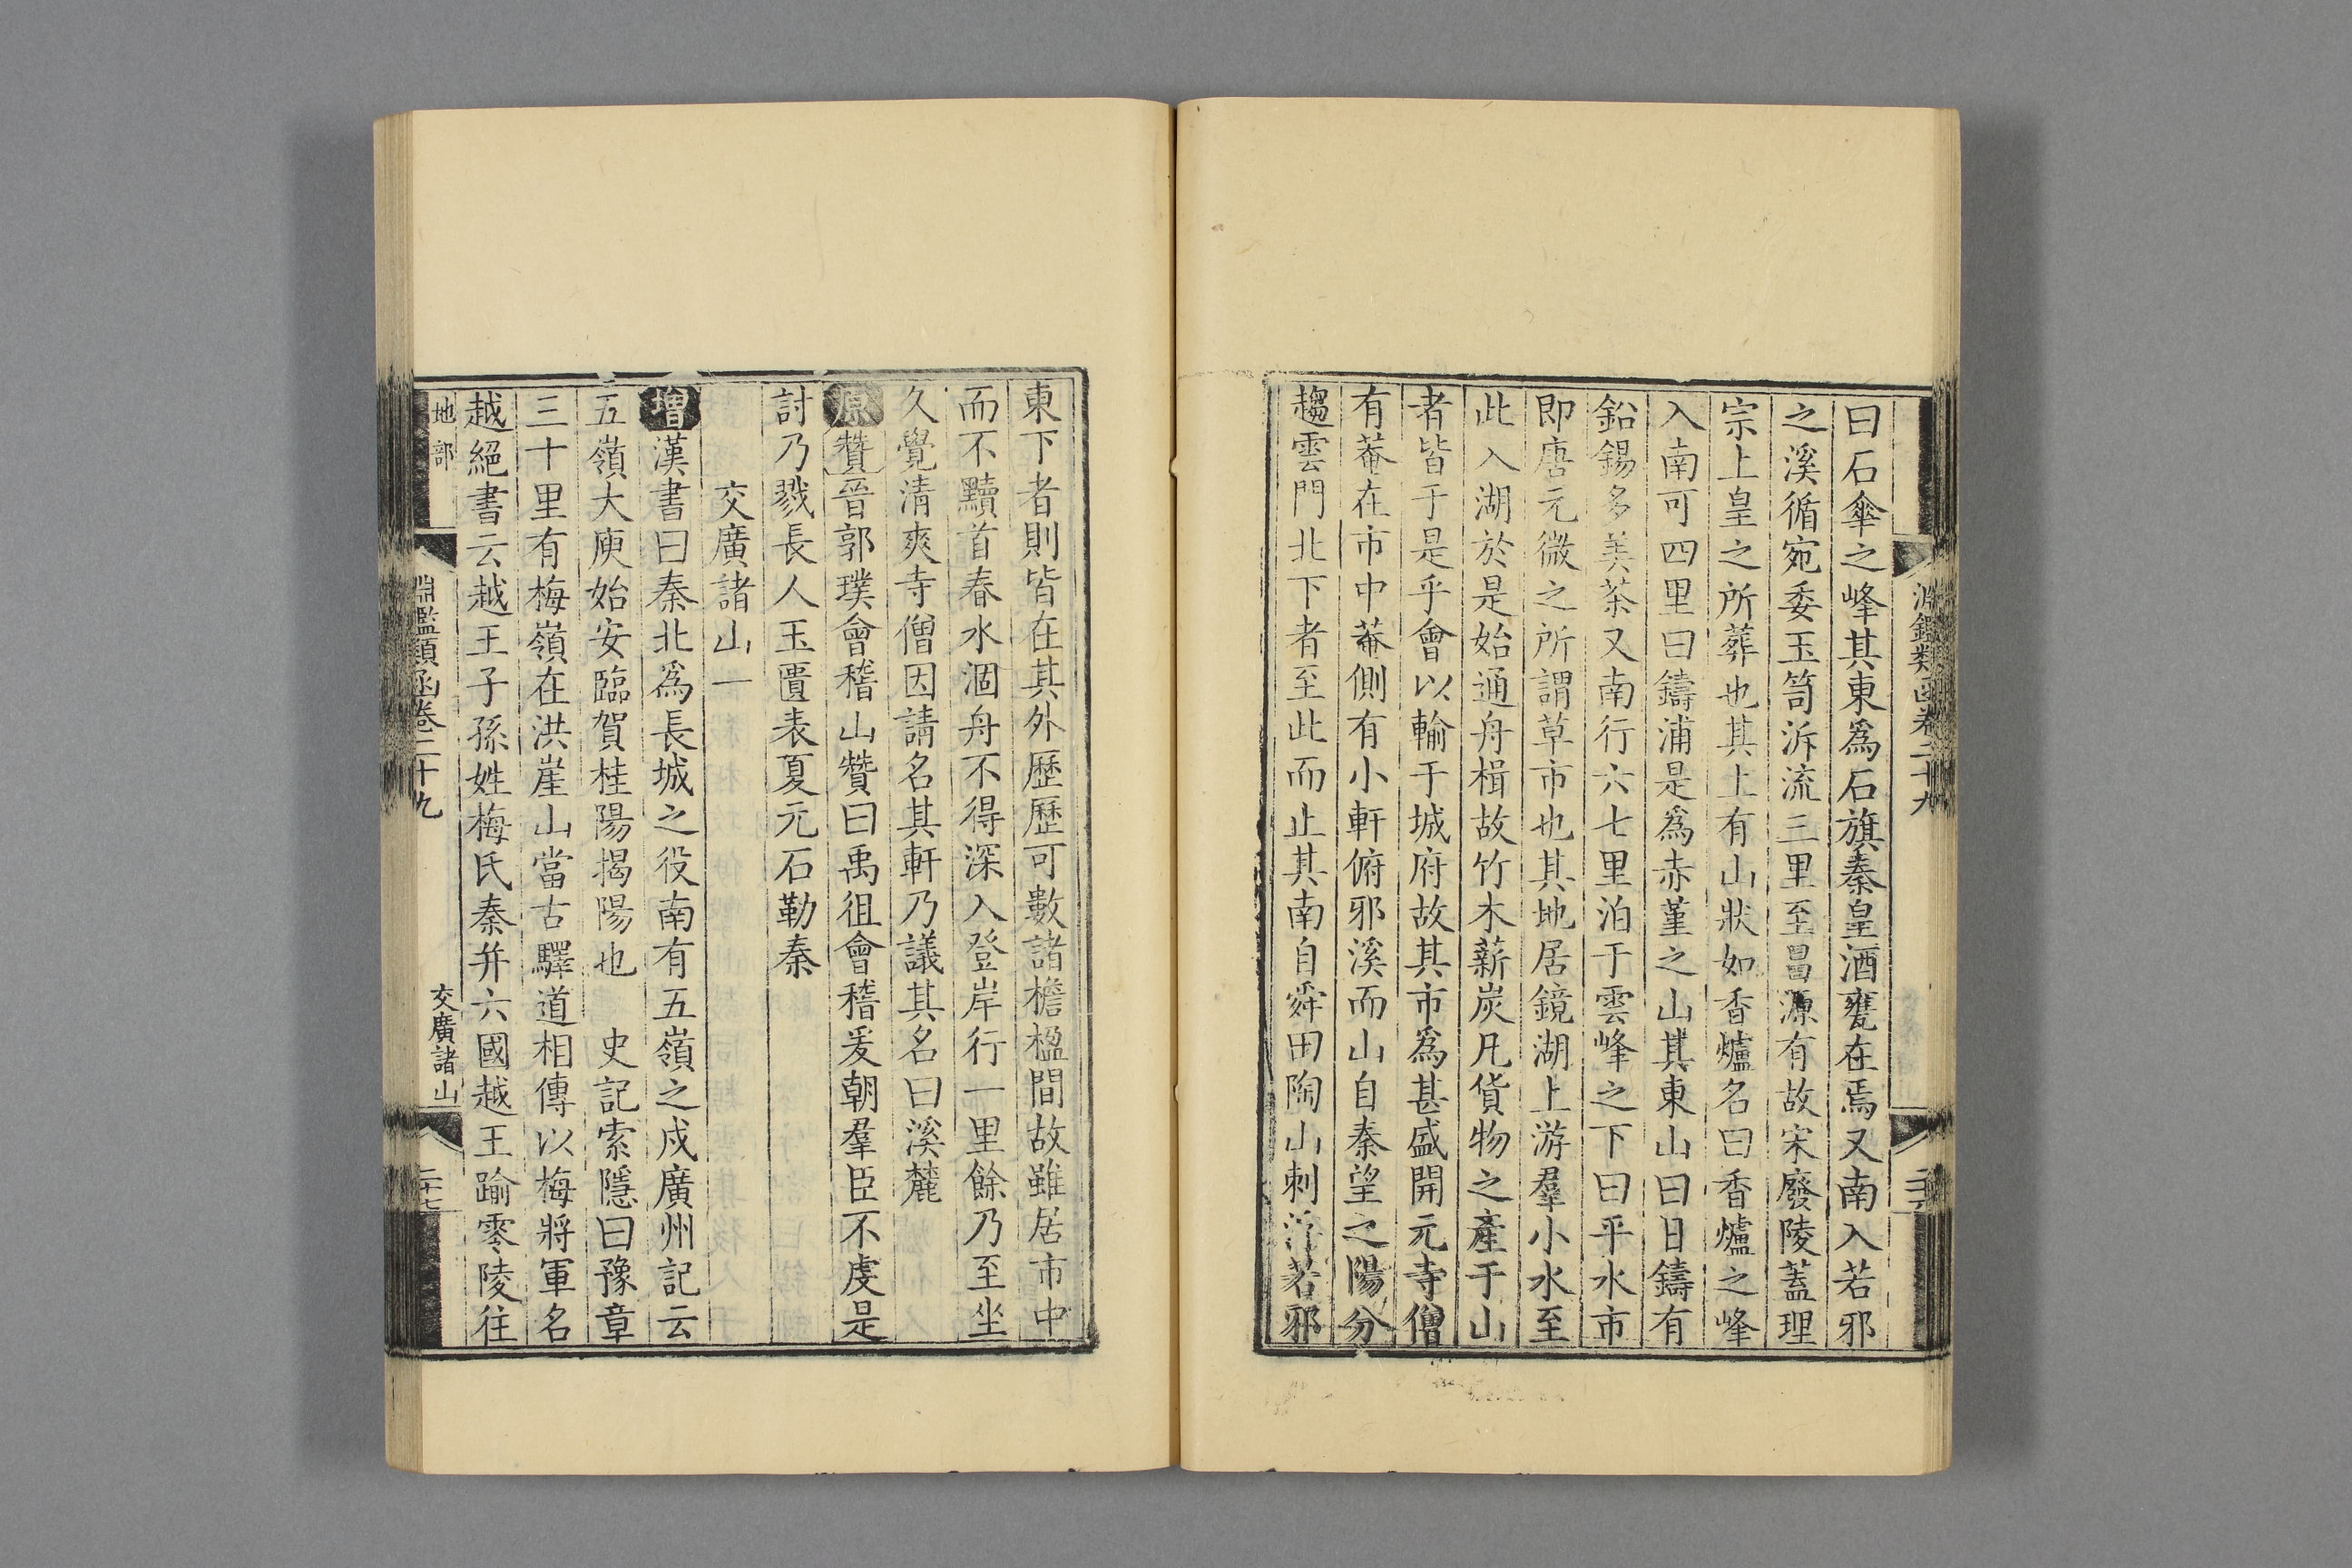 淵鑑類函卷二十九
二十六
曰石傘之峰其東爲石旗秦皇酒甕在焉又南入若邪
之溪循宛委玉笥泝流三里至昌源有故宋廢陵蓋理
宗上皇之所葬也其上有山狀如香爐名曰香爐之峰
入南可四里曰鑄浦是爲赤堇之山其東山曰日鑄有
鉛錫多美茶又南行六七里泊于雲峰之下曰平水市
即唐元微之所謂草市也其地居鏡湖上游羣小水至
此入湖於是始通舟楫故竹木薪炭凡貨物之產于山
者皆于是乎會以輸于城府故其市爲甚盛開元寺僧
有菴在市中菴側有小軒俯邪溪而山自秦望之陽分
趨雲門北下者至此而止其南自舜田陶山刺浮若邪
東下者則皆在其外歷歷可數諸檐楹間故雖居市中
而不黷首春水涸舟不得深入登岸行一里餘乃至坐
久覺清爽寺僧因請名其軒乃議其名曰溪麓
原贊晉郭璞會稽山贊曰禹徂會稽爰朝羣臣不虔是
討乃戮長人玉匱表夏元石勒秦
交廣諸山一
增漢書曰秦北爲長城之役南有五嶺之戍廣州記云
五嶺大庾始安臨賀桂陽揭陽也　史記索隱曰豫章
三十里有梅嶺在洪崖山當古驛道相傳以梅將軍名
越絕書云越王子孫姓梅氏秦并六國越王踰零陵往
地部
淵鑑類函卷二十九
交廣諸山
二十七